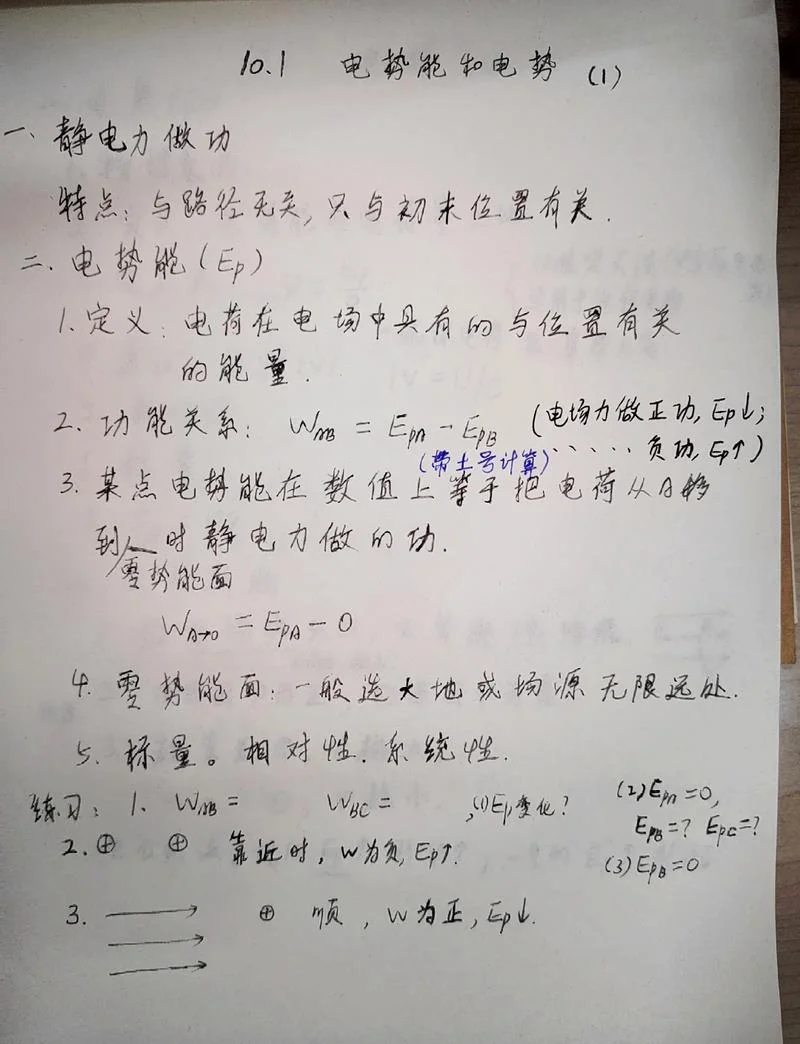 10.1 电势能和电势 (1)
一、静电力做功
特点：与路径无关，只与初末位置有关.
二、电势能(Ep)
1. 定义：电荷在电场中具有的与位置有关
的能量.
2. 功能关系：W_AB = E_pA - E_pB (电场力做正功, Ep↓;
(带±号计算) ..... 负功, Ep↑)
3. 某点电势能在数值上等于把电荷从A移
到 时静电力做的功.
零势能面
W_A→0 = E_pA - 0
4. 零势能面：一般选大地或场源无限远处.
5. 标量。相对性. 系统性.
练习：1. W_AB = W_BC = , (1) Ep变化? (2) E_pA = 0,
E_pB = ? E_pC = ?
2. ⊕ ⊕ 靠近时, W为负, Ep↑.
(3) E_pB = 0
3. ⊕ 顺, W为正, Ep↓.